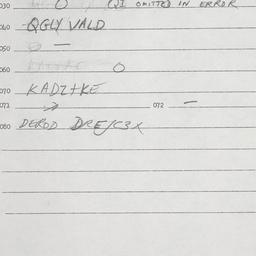 030 O (21 OMITTED IN ERROR
040 QGLY VALD
050 —
060 O
070 KADZTKE
071 → 072 —
080 DEROD DREJC3X